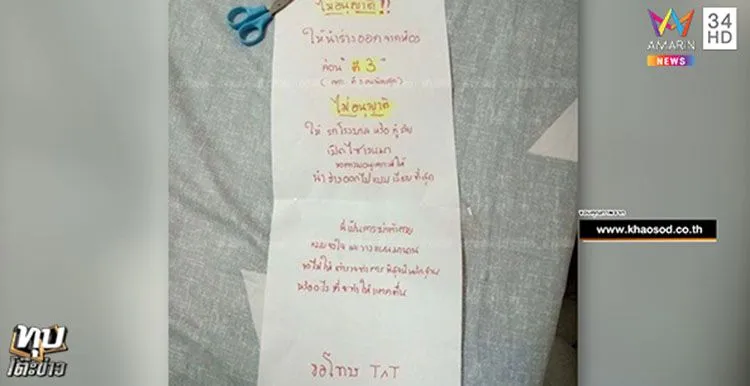 ไม่อนุญาติ!!
ให้นำร่างออกจากห้อง
ก่อน" ตี 3 "
ไม่อนุญาติ
ให้ รถโรงบาล หรือ กู้ภัย
เปิดไซเรนมา
นำร่างออกไปแบบเงียบที่สุด
นี่เป็นการฆ่าตัวตาย
หรืออะไรที่จะทำให้แตกตื่น
ขอโทษ T^T
AMARIN
NEWS
34
HD
ขอบคุณภาพจาก
www.khaosod.co.th
ทุบ
โต๊ะข่าว